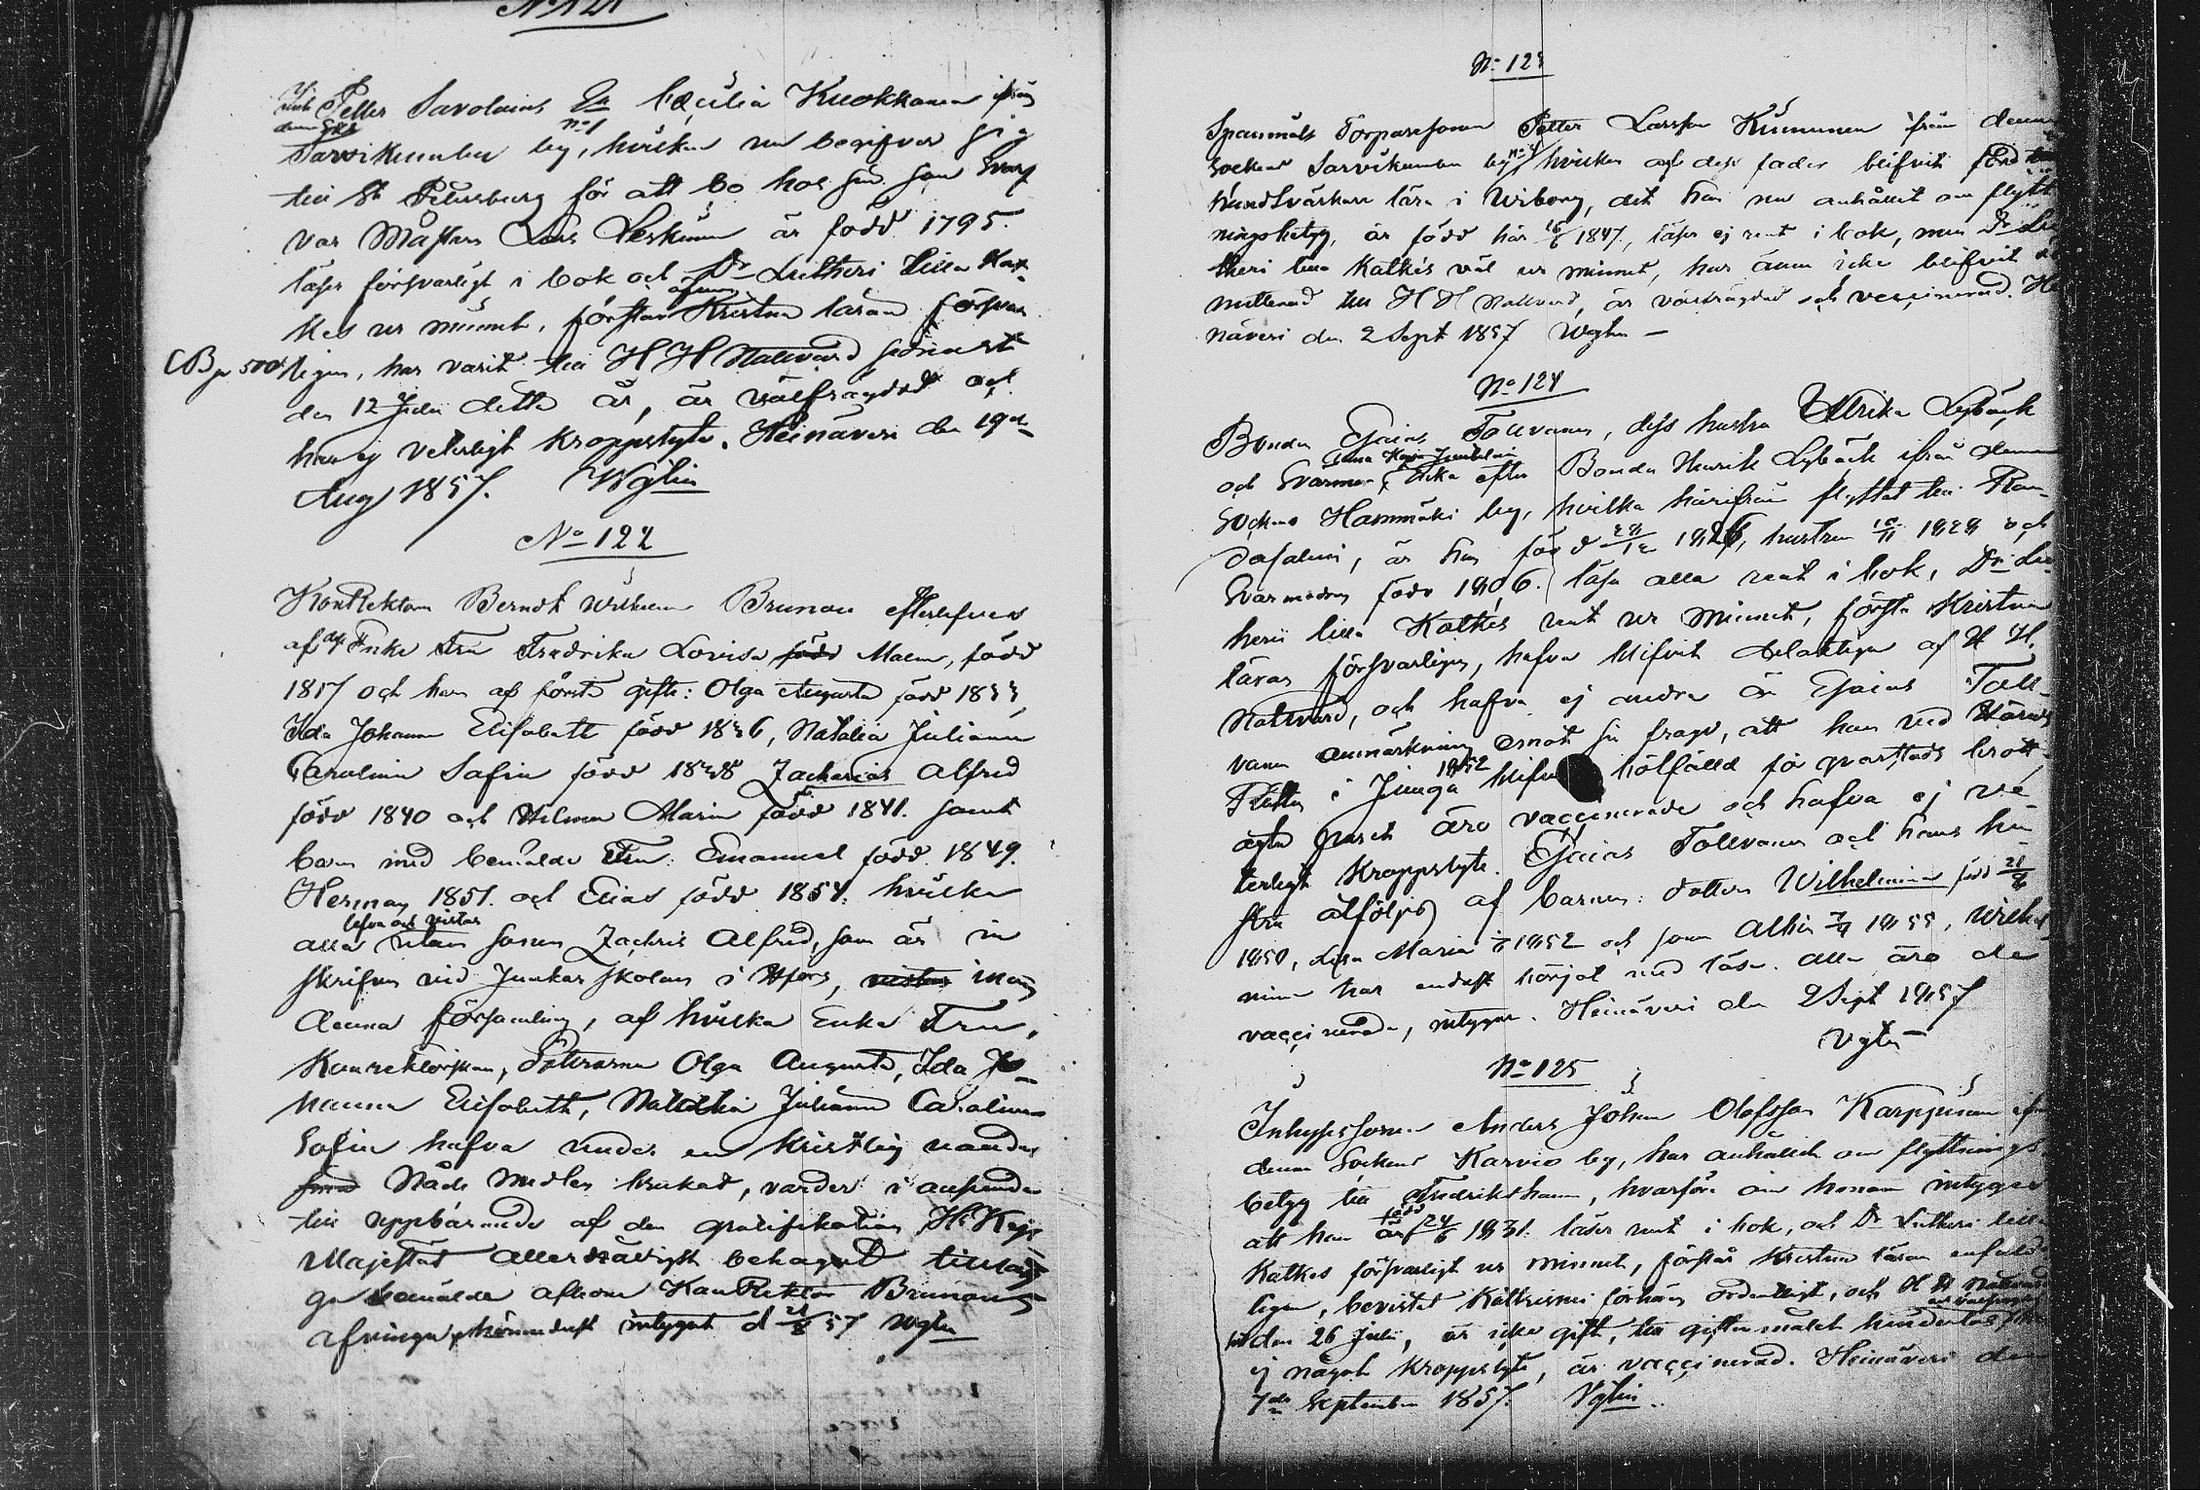 No 121
Petter Savolains Cæcilia Kuokkanen ifrån
denna Skn No 1
Sarvikumbu by, hvilken nu begifver sig
till St Petersburg för att bo hos sin
var Mästare Lars Leskinen är född 1795.
läser försvarligt i bok och Dr Lutheri Lilla Kat-
kes ur minnet, förstår Kristna läran försvar
CB p 500 ligen, har varit till H H Nattvard sednast
den 12 Julii detta år, är välfrägdad och
har ej veterligt kroppslyte. Heinävesi den 19de
Aug 1857. Wglin
No 122
KonRektorn Berndt Wilhelm Brunou efterlefves
af Enka Fru Fredrika Lovisa född Malm, född
1817 och hans af första gifte: Olga Augusta född
Ida Johanna Elisabeth född 1836, Natalia Juliana
Carolina Sofia född 1838 Zacharias Alfred
född 1840 och Wilma Maria född 1841. samt
barn med bemälde Fru: Emanuel född 1849.
Herman 1851. och Elias född 1854. hvilka
lefva och vistas
alla utom sonen Zachris Alfred, som är in
skrifven vid Junkar skolan i Hfors, vistas inom
denna församling, af hvilka Enke Fru,
Konrektorskan, Döttrarna Olga Augusta, Ida Jo-
hanna Elisabeth, Natalia Juliana Carolina
Sofia hafva under en Kristlig vandel
Nåde medlen brukat, varder i anseende
till uppbärande af den gratifikation Hs Kejs
Majestät allernådigst behagat tillägga
bemälde aflidne KonRektor Brunous
intygat d 21/8 57 Wglin
No 123
Spanmåls Torparesonen Petter Larsson Kinnunen från denna
sockens Sarvikumbu by No 4 hvilken af dess fader blifvit förd till
handtvärkare lära i Wiborg, det han nu anhållit om flytt
ningsbetyg, är född här 16/6 1847, läser ej rent i bok, men Dr Lu
theri lilla Katkes väl ur minnet, har ännu icke blifvit ad
mitterad till H H Nattvard, är välfrägdad och vaccinerad. Hei
näveri den 2 Sept 1857 Wglin
No 124
Bonden Esaias Tollvanen, dess hustru Ullrika Lybäck
och Svärmor, Enka efter Bonden Henrik Lybäck ifrån denna
Sockens Hasumäki by, hvilka härifrån flyttat till Ran-
dasalmi, är han född 1826, hustrun 1828 och
Svärmodren född 1806. läsa alla rent i bok, Dr Lu
theri lilla Katkes rent ur minnet, förstå Kristna
läran försvarligen, hafva blifvit delaktige af H H.
Nattvard, och hafva ej andra än Esaias Toll-
vanen anmärkning emot sin frägd, att han vid Härads
Rätten i Jiunga 1852 blifvit bötfälld för qvarstads brott
äro vaccinerade och hafva ej ve-
terligt Kroppslyte. Esaias Tollvanen och hans hu-
stru åtföljas af barnen: dottren Wilhelmina född
1850, Lisa Maria 1852 och sonen Albin 1855, Wilhel
mina har endast börjat med läsa. Alla äro de
vaccinerade, intygar. Heinävesi den 2 Sept 1857
Wglin
No 125
Inhyses sonen Anders Johan Olofsson Karppinen ifrån
denna Sockens Karvio by, har anhållit om flyttnings
betyg till Fredrikshamn, hvarföre om honom intygas
att han är född 24/6 1831. läser rent i bok, och Dr Lutheri lilla
Katkes försvarligt ur minnet, förstår Kristna läran enfaldi
ligen, bevistat Katkismi förhören ordentligt, och H H Nattvard
den 26 Julii, är icke gift, till giftermålet hinderlös
ej något kroppslyte, är vaccinerad. Heinävesi den
7de September 1857. Wglin